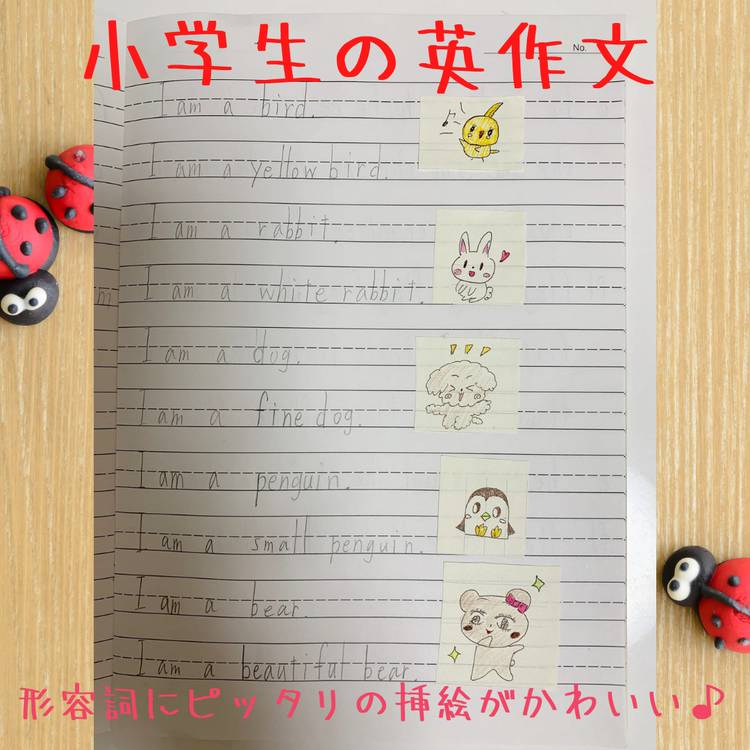 小学生の英作文
No.
I am a bird.
I am a yellow bird.
I am a rabbit.
I am a white rabbit.
I am a dog.
I am a fine dog.
I am a penguin.
I am a small penguin.
I am a bear.
I am a beautiful bear.
形容詞にピッタリの挿絵がかわいい♪